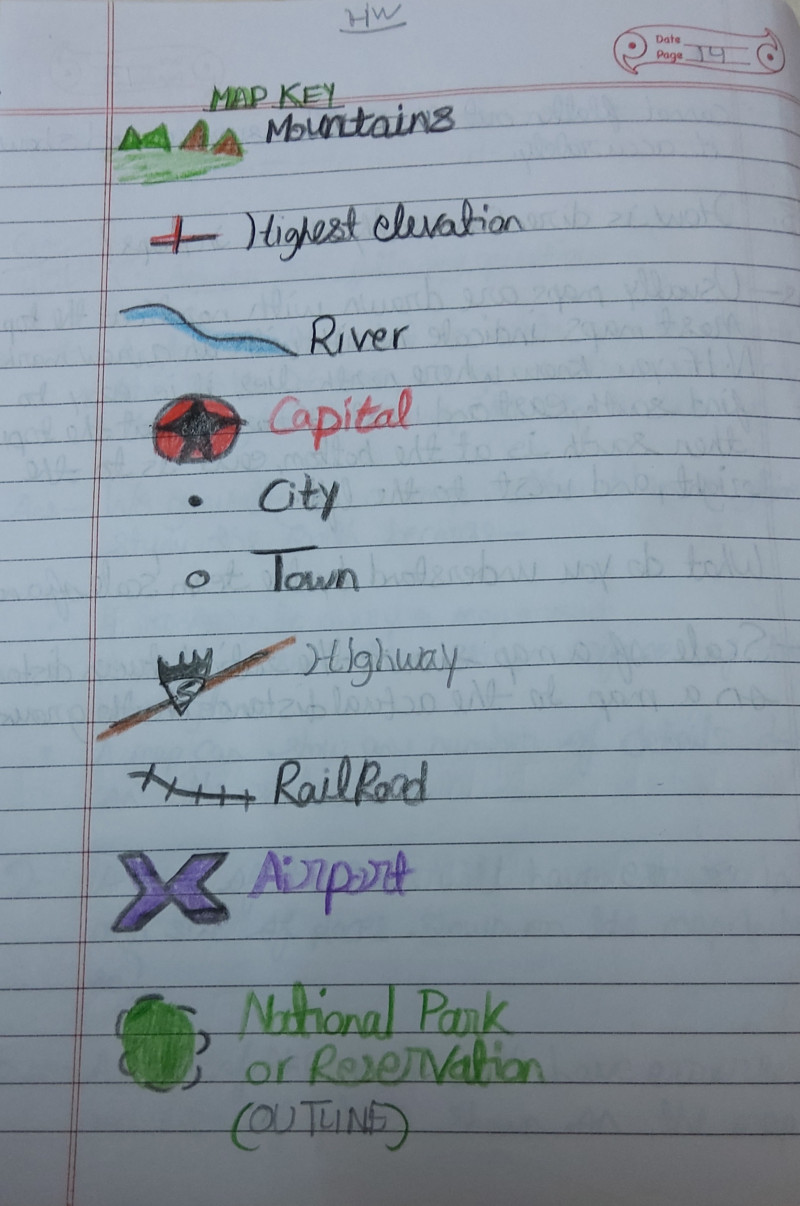 HW
Date
Page 14
MAP KEY
Mountains
Highest elevation
River
Capital
City
Town
Highway
5
RailRoad
Airport
National Park
or Reservation
(OUTLINE)